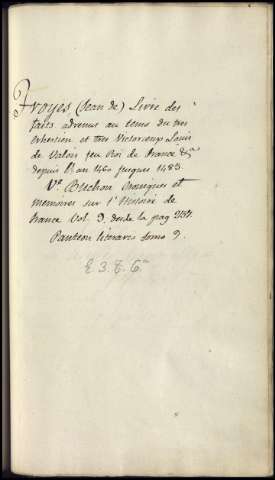 Troyes (Jean de) Livre des
faits advenus au tems du tres
chretien et tres Victorieux Louis
de Valois feu Roi de France &a
depuis l'an 1460 jusques 1483.
Ve Buchon Croniques et
memoires sur l'histoire de
France Vol. 9. desde la pag 237.
Panteon literaire tomo 9.
E 3. T. 6